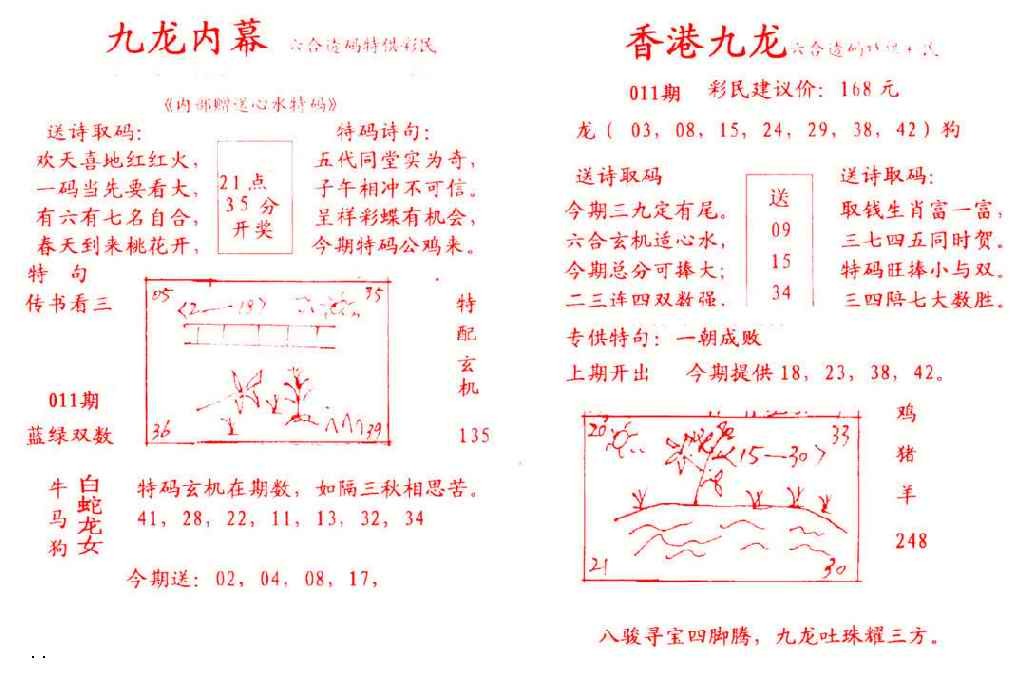 九龙内幕 六合造码特供彩民
《内部赠送心水特码》
送诗取码：
欢天喜地红红火，
一码当先要看大，
有六有七名自合，
春天到来桃花开，
21点
35分
开奖
特码诗句：
五代同堂实为奇，
子午相冲不可信。
呈样彩蝶有机会，
今期特码公鸡来。
特 句
传书看三
011期
蓝绿双数
05 35
<2—18>
36 39
特
配
玄
机
135
牛
马
狗
白蛇龙女
特码玄机在期数，如隔三秋相思苦。
41, 28, 22, 11, 13, 32, 34
今期送：02, 04, 08, 17,
香港九龙 六合造码
011期 彩民建议价：168元
龙（ 03, 08, 15, 24, 29, 38, 42）狗
送诗取码
今期三九定有尾。
六合玄机造心水，
今期总分可捧大；
二三连四双数强.
送
09
15
34
送诗取码：
取钱生肖富一富，
三七四五同时贺。
特码旺捧小与双。
三四陪七大数胜。
专供特句：一朝成败
上期开出 今期提供18, 23, 38, 42。
20 33
<15—30>
21 30
鸡
猪
羊
248
八骏寻宝四脚腾，九龙吐珠耀三方。